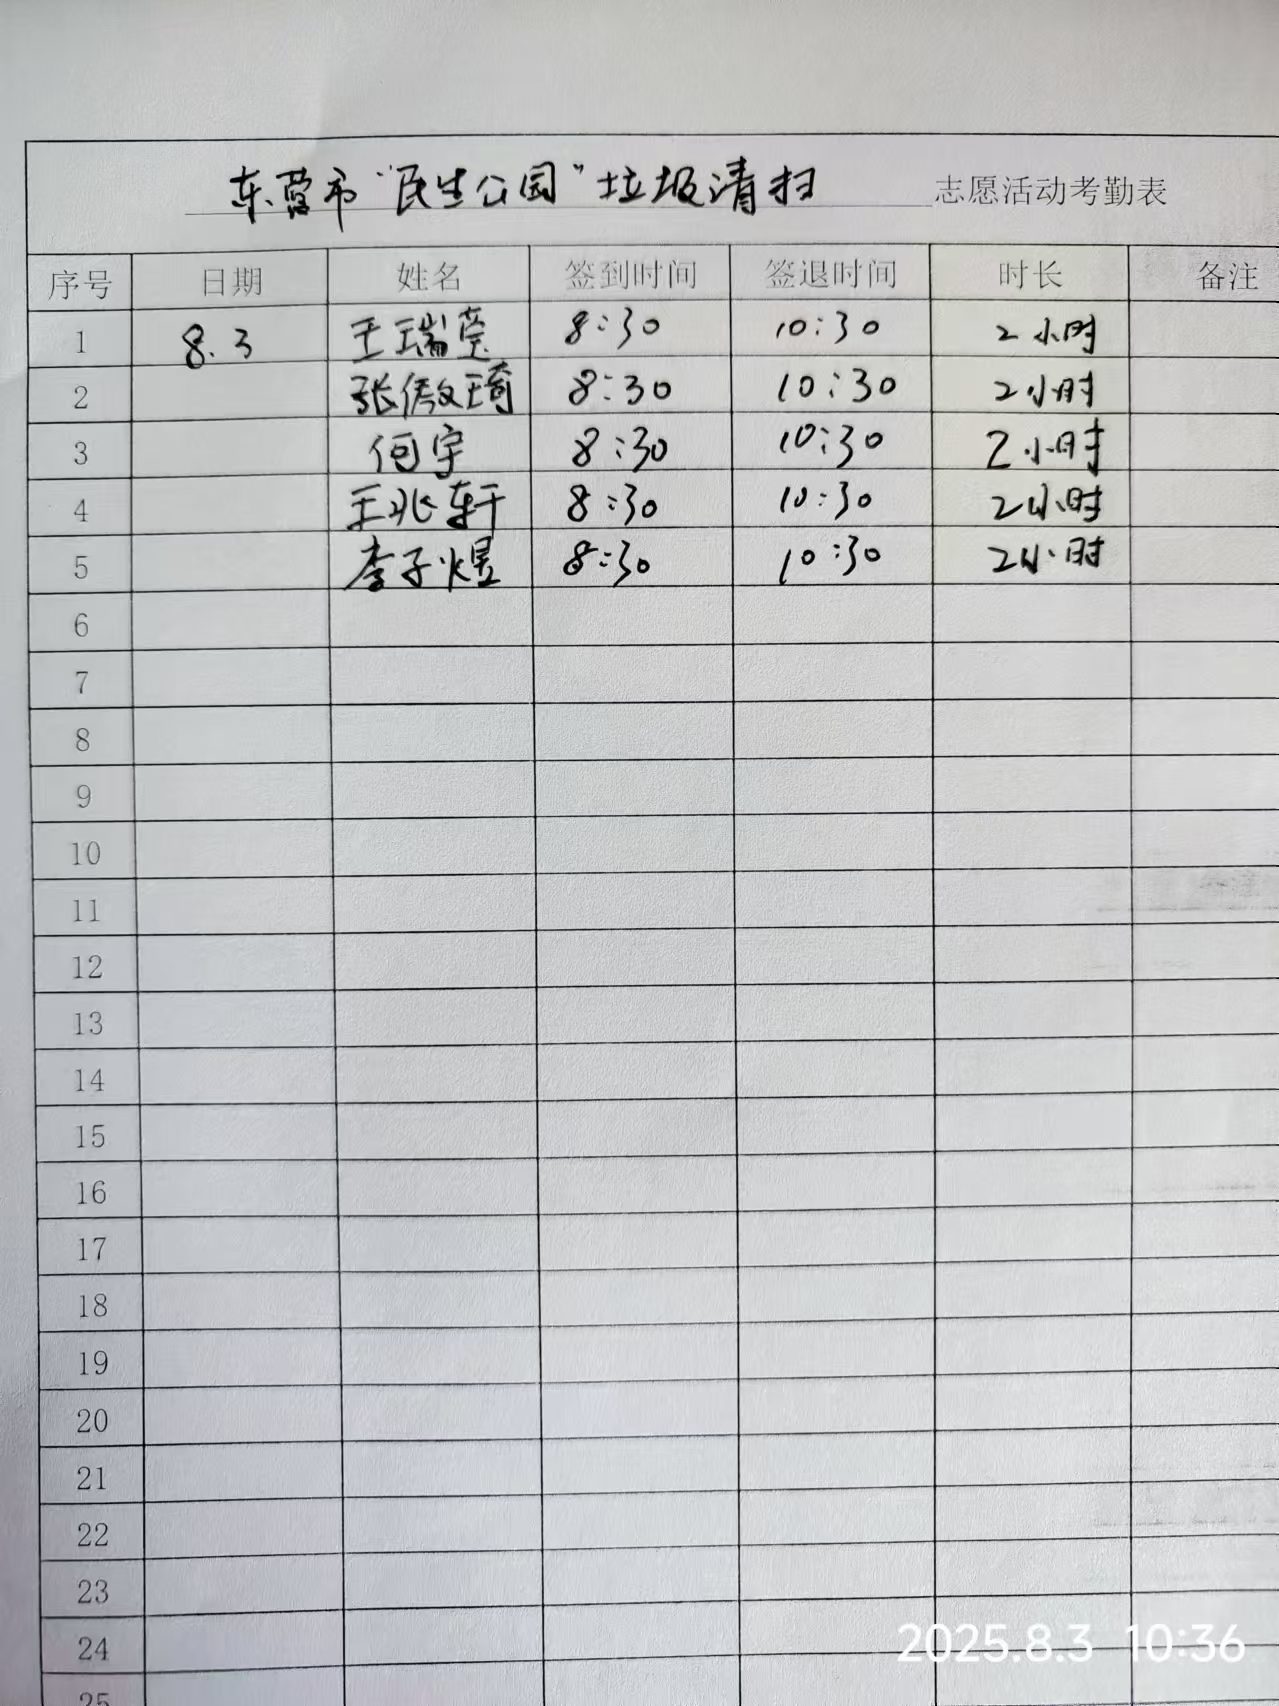 东营市“民生公园”垃圾清扫 志愿活动考勤表
序号 日期 姓名 签到时间 签退时间 时长 备注
1 8.3 王瑞莹 8:30 10:30 2小时
2 张傲琦 8:30 10:30 2小时
3 何宇 8:30 10:30 2小时
4 王兆轩 8:30 10:30 2小时
5 李子煜 8:30 10:30 2小时
6
7
8
9
10
11
12
13
14
15
16
17
18
19
20
21
22
23
24
25
2025.8.3 10:36